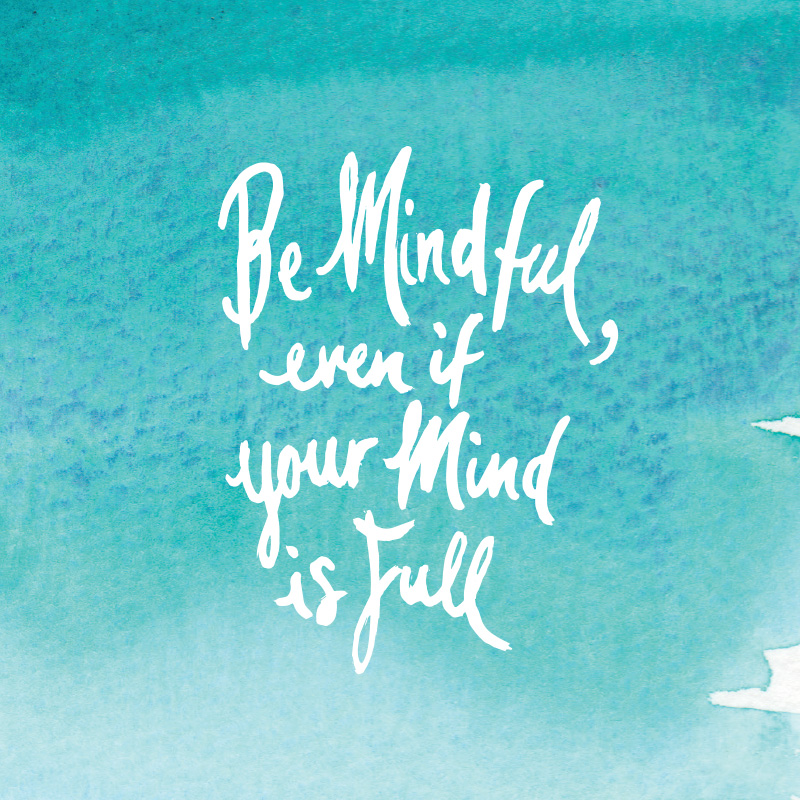 Be Mindful,
even if
your Mind
is Full